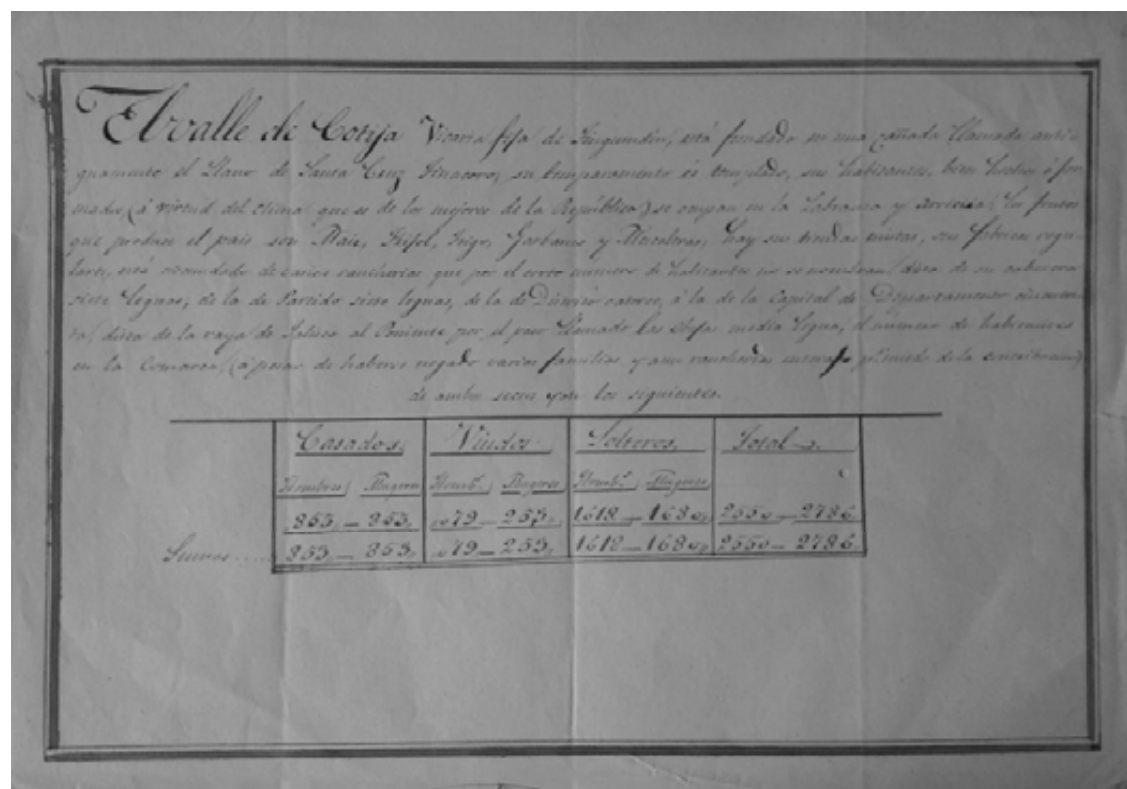 El valle de Cotija Vicaría fija de Tinguindin, está fundado en una cañada llamada anti-
guamente el Llano de Santa Cruz su temparamento és templado, sus habitantes, bien hechos é for-
mados, (á virtud del clima que es de los mejores de la República) se ocupan en la Labranza y arriería. Los frutos
que produce el pais son Maiz, Frijol, Trigo, Garbanzo y hay sus tiendas mistas, sus fabricas regu-
lares, está de varias rancherias que por el corto número de habitantes no se nombran, dista de su cabecera
siete leguas, de la de Partido siete leguas, de la de Distrito catorce, á la de la Capital de Departamento
dista de la raya de Jalisco al Poniente por el paso llamado Las media legua, el número de habitantes
en la Comarca, (á pesar de haberse negado varias familias y aun rancherias de la contribucion)
de ambos secsos son los siguientes.
Casados, Viudos. Solteros, Total
Hombres, Mugeres Homb.s, Mugeres Homb.s Mugeres
853, — 853, ,,79 — 253, 1618 — 1680, 2550 — 2786
Sumas.... 853, — 853, ,,79 — 253, 1618 — 1680, 2550 — 2786